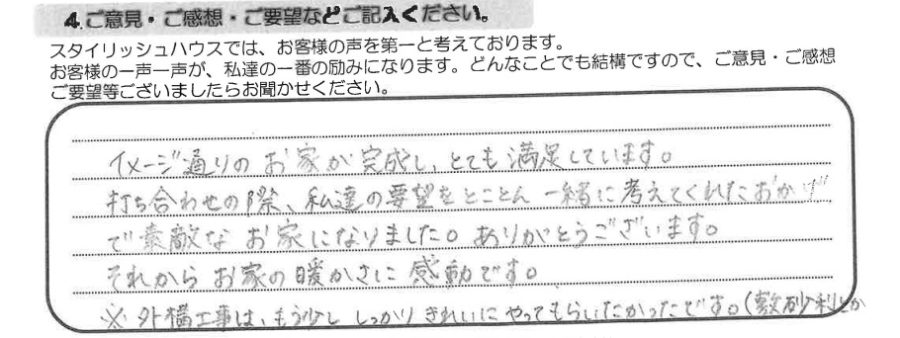 4.ご意見・ご感想・ご要望などご記入ください。
スタイリッシュハウスでは、お客様の声を第一と考えております。
お客様の一声一声が、私達の一番の励みになります。どんなことでも結構ですので、ご意見・ご感想
ご要望等ございましたらお聞かせください。
イメージ通りのお家が完成し、とても満足しています。
打ち合わせの際、私達の要望をとことん一緒に考えてくれたおかげ
で素敵なお家になりました。ありがとうございます。
それからお家の暖かさに感動です。
※外構工事は、もう少ししっかりきれいにやってもらいたかったです。(敷砂利とか